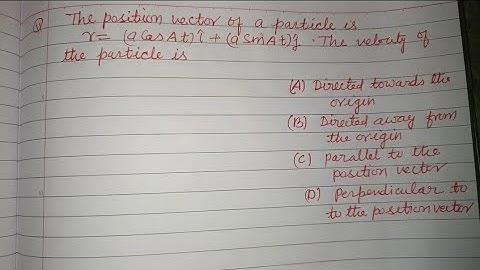 Q The position vector of a particle is
r = (a Cos At)î + (a Sin At)ĵ . The velouty of
the particle is
(A) Directed towards the
origin
(B) Directed away from
the origin
(C) parallel to the
position vector
(D) Perpendicular to
to the position vector